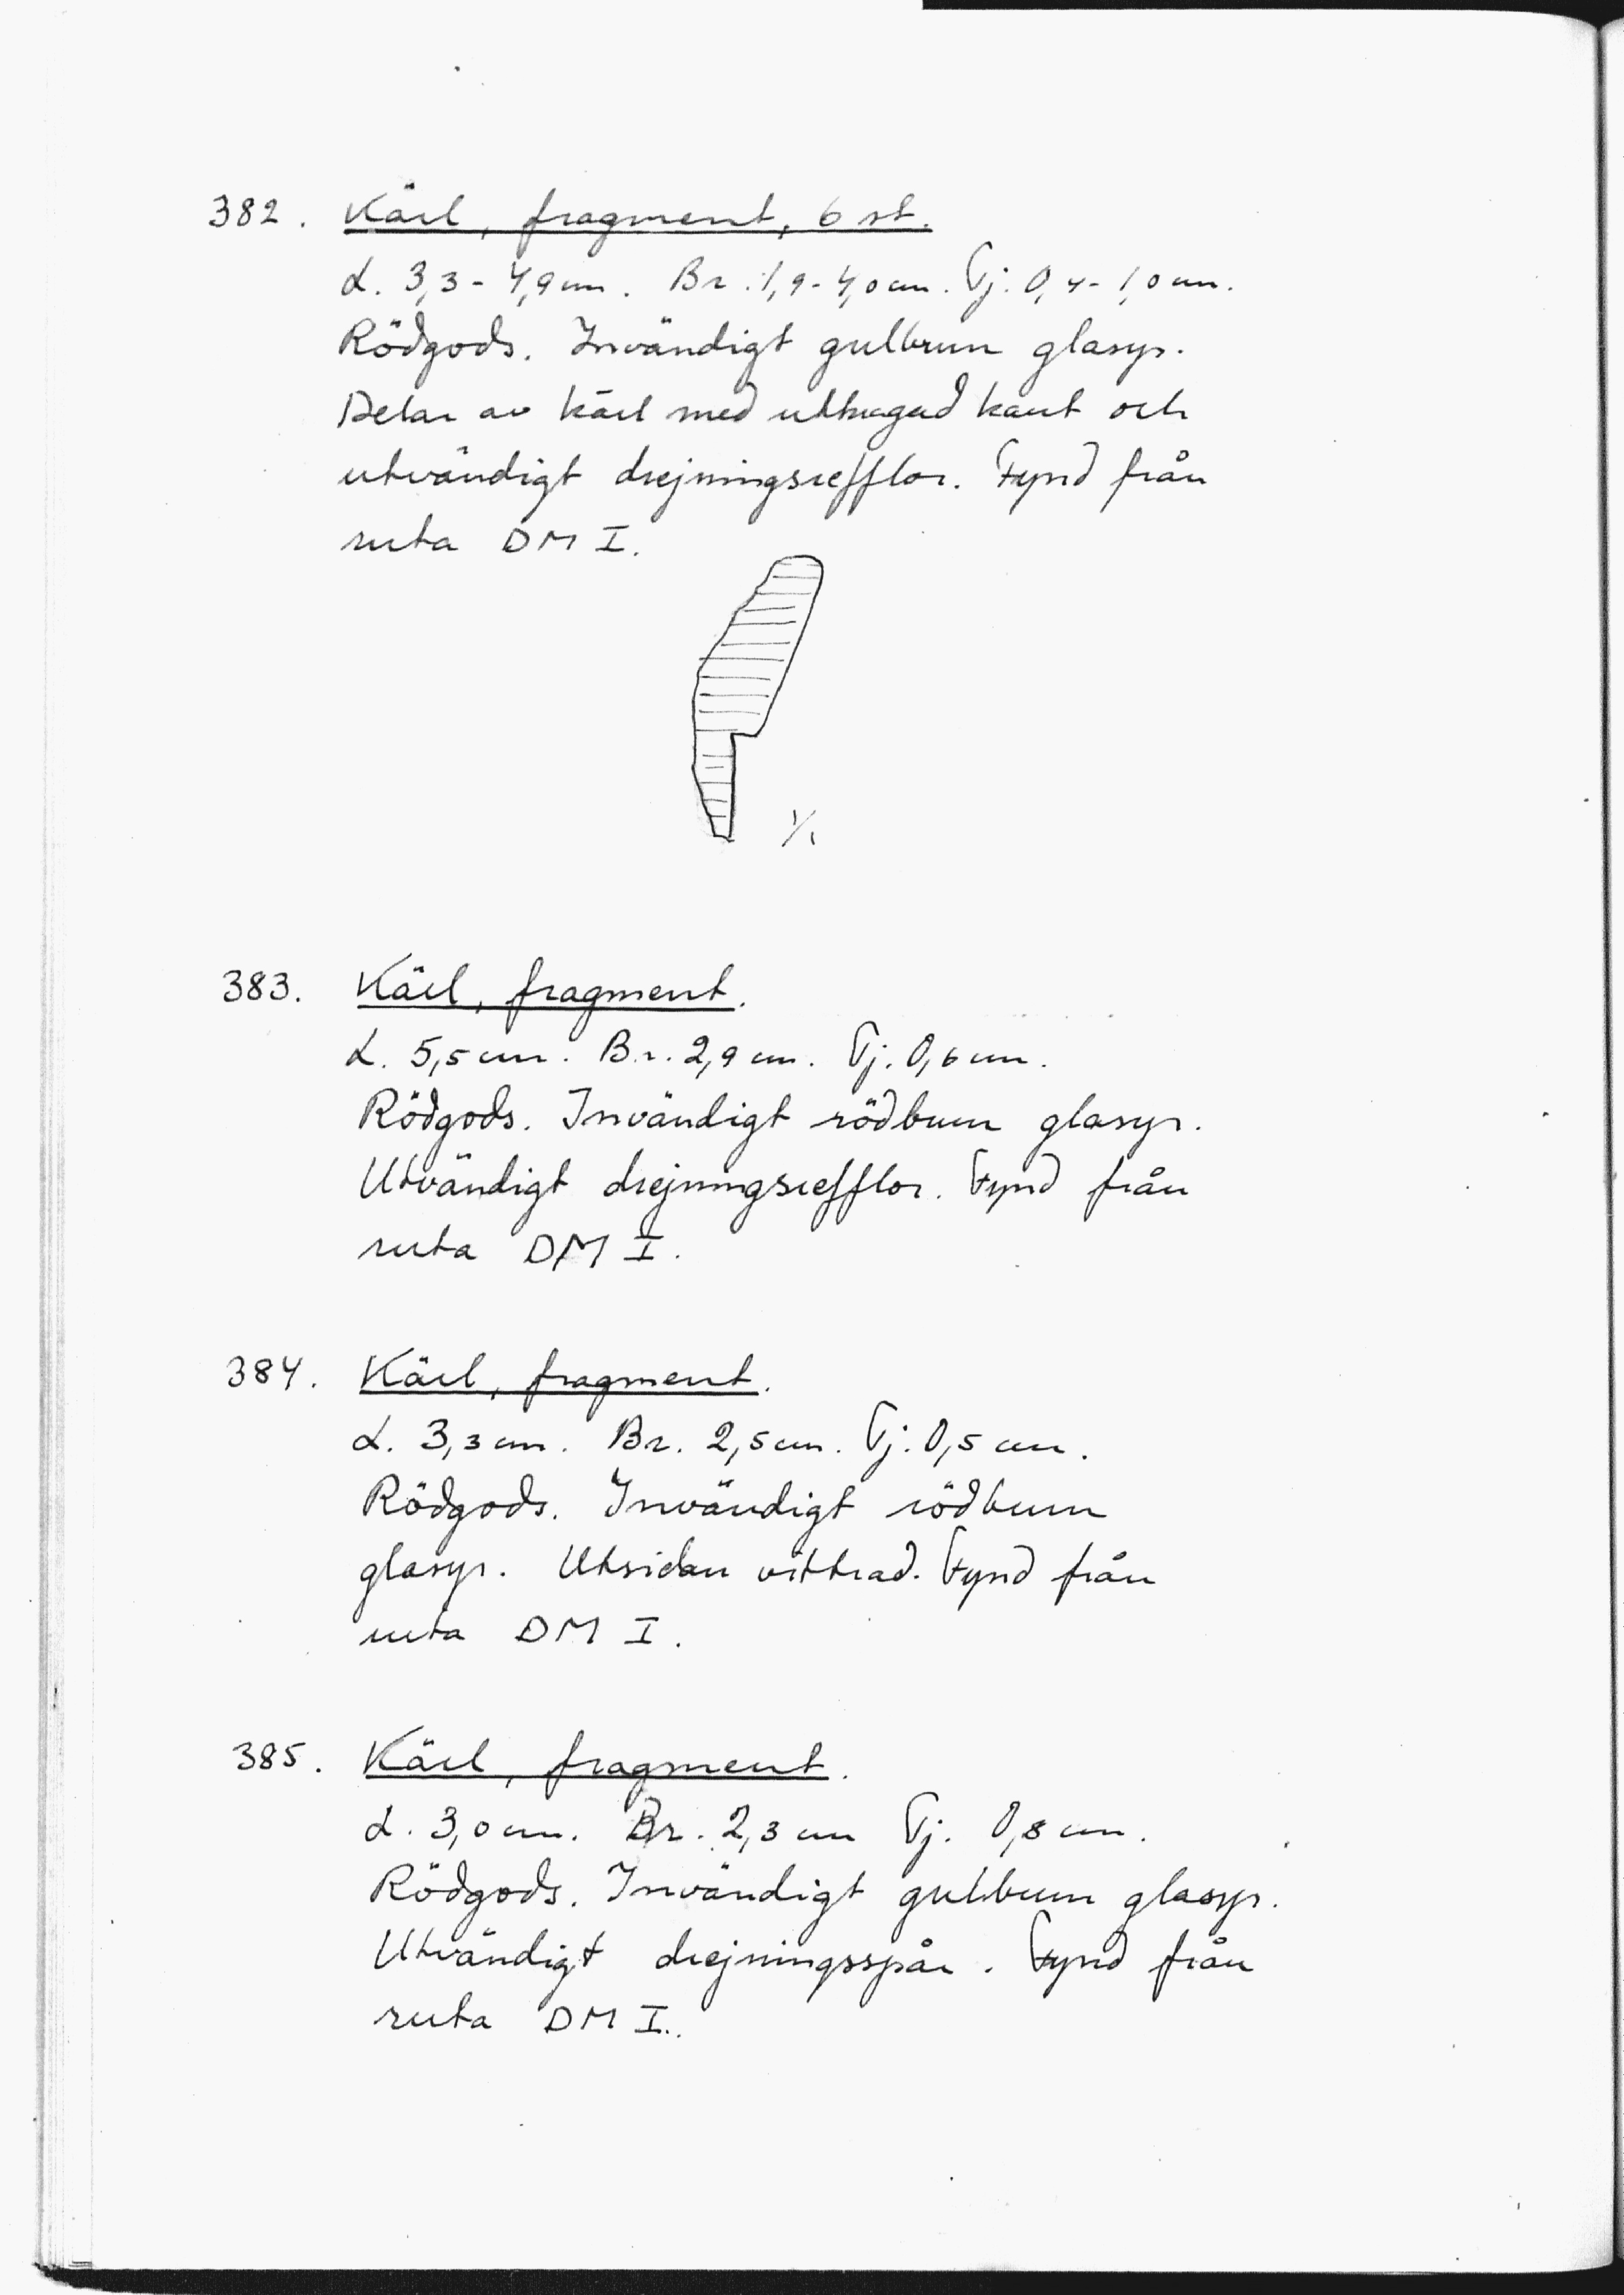 382. Kärl, fragment, 6 st.
L. 3,3-4,9 cm. Br. 1,9-4,0 cm. Tj. 0,4-1,0 cm.
Rödgods. Invändigt gulbrun glasyr.
Delar av kärl med utdragad kant och
utvändigt drejningsrefflor. Fynd från
ruta DM I.
1/1
383. Kärl, fragment.
L. 5,5 cm. Br. 2,9 cm. Tj. 0,6 cm.
Rödgods. Invändigt rödbrun glasyr.
Utvändigt drejningsrefflor. Fynd från
ruta DM I.
384. Kärl, fragment.
L. 3,3 cm. Br. 2,5 cm. Tj. 0,5 cm.
Rödgods. Invändigt rödbrun
glasyr. Utsidan vittrad. Fynd från
ruta DM I.
385. Kärl, fragment.
L. 3,0 cm. Br. 2,3 cm Tj. 0,8 cm.
Rödgods. Invändigt gulbrun glasyr.
Utvändigt drejningsspår. Fynd från
ruta DM I.